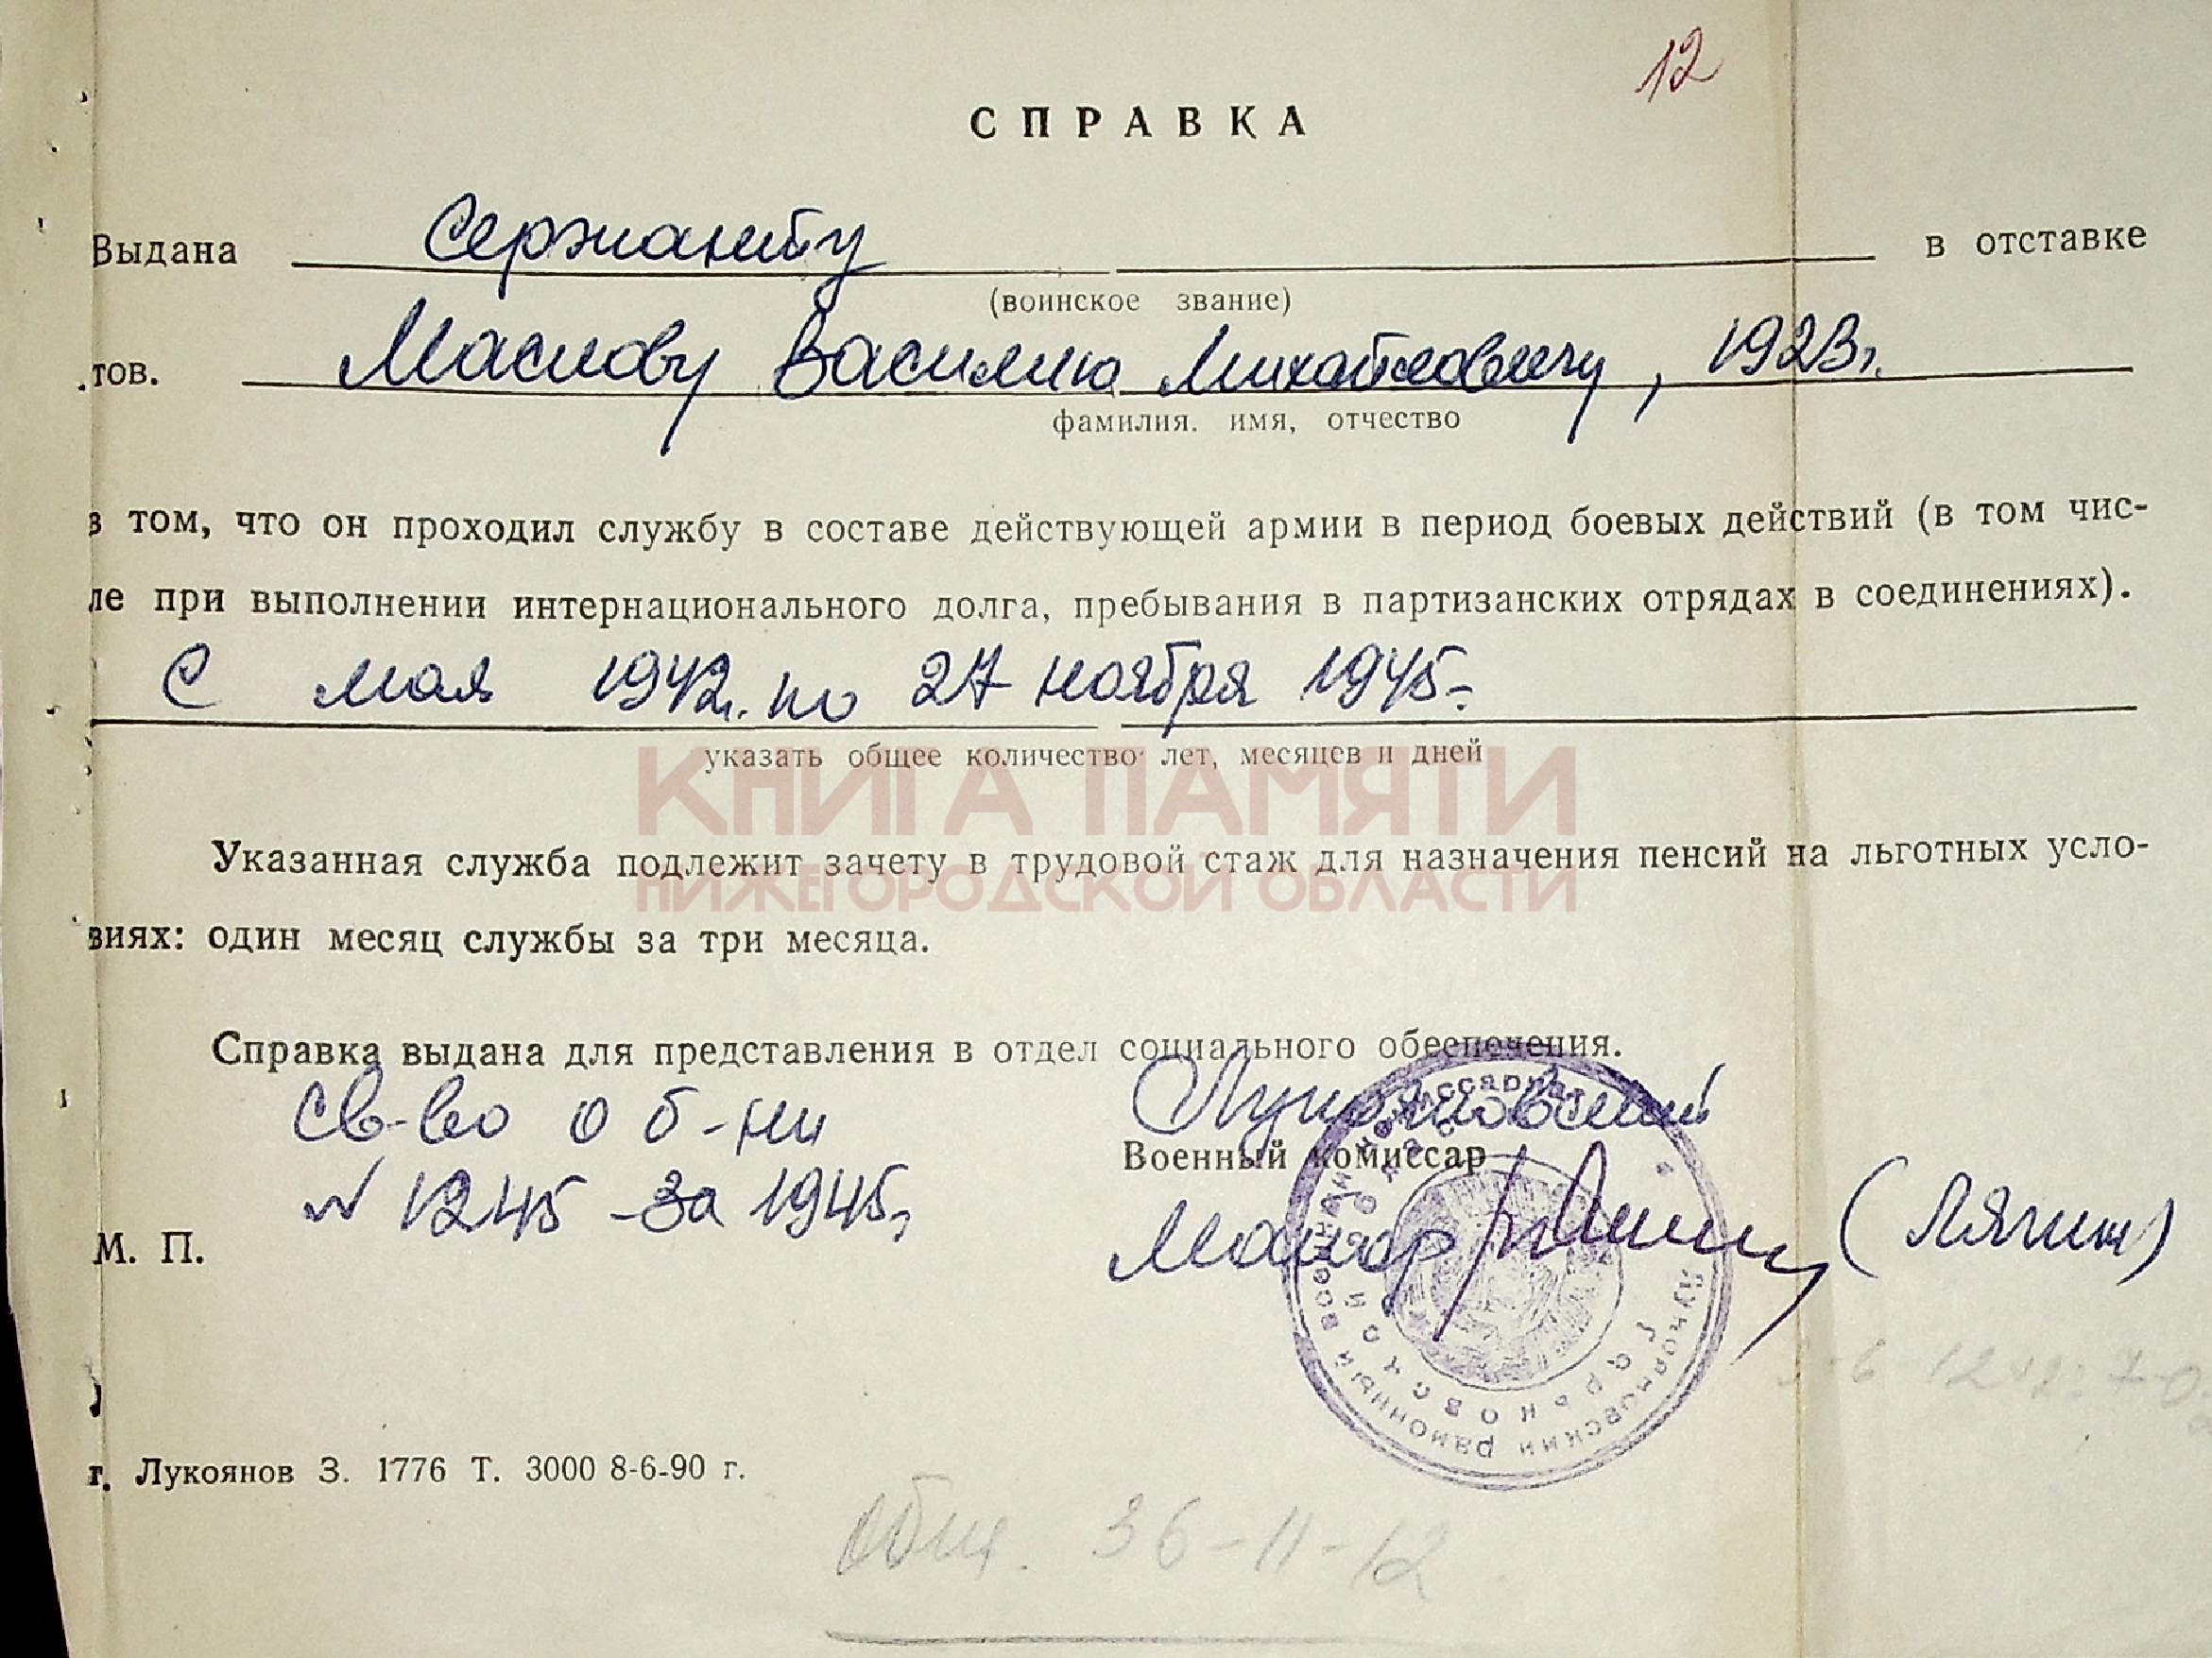 12
СПРАВКА
Выдана Сержанту в отставке
(воинское звание)
тов. Маслову Василию Михайловичу, 1923г.
фамилия. имя, отчество
в том, что он проходил службу в составе действующей армии в период боевых действий (в том чис-
ле при выполнении интернационального долга, пребывания в партизанских отрядах в соединениях).
С мая 1942г. по 27 ноября 1945г.
указать общее количество лет, месяцев и дней
КНИГА ПАМЯТИ
НИЖЕГОРОДСКОЙ ОБЛАСТИ
Указанная служба подлежит зачету в трудовой стаж для назначения пенсий на льготных усло-
виях: один месяц службы за три месяца.
Справка выдана для представления в отдел социального обеспечения.
Св-во о б-ни
№ 1245 за 1945г.
Лукояновский
Военный комиссар
Майор (Лягин)
М. П.
Лукояновский районный военный комиссариат
Горьковской
г. Лукоянов З. 1776 Т. 3000 8-6-90 г.
Общ. 36-11-12